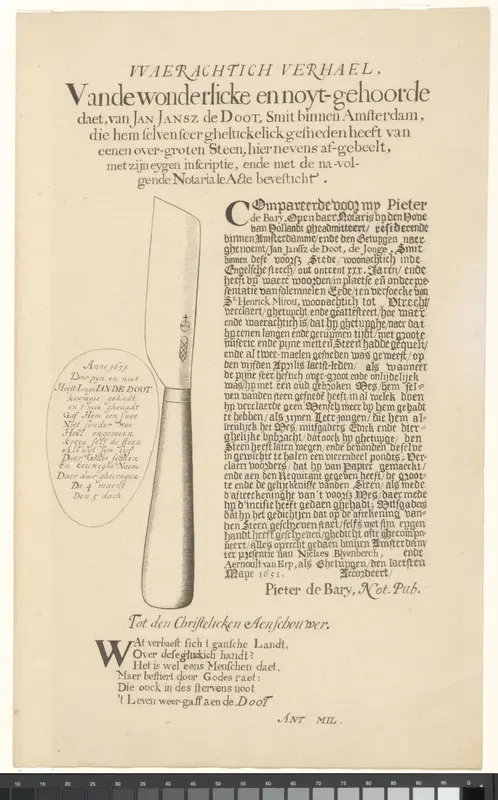 WAERACHTICH VERHAEL.
Vande wonderlicke en noyt-gehoorde
daet, van JAN JANSZ de DOOT, Smit binnen Amsterdam,
die hem selven seer gheluckelick gesneden heeft van
eenen over-groten Steen, hier nevens af-gebeelt,
met zijn eygen inscriptie, ende met de na-vol-
gende Notariale Acte bevesticht.
Anno 1651
Door pyn en noot
Heeft JAN DE DOOT
gehadt
Niet sonder
De 4 maent
Den 5 dach
COmpareerde voor my Pieter
de Bary, Openbaer Notaris by den Hove
van Hollandt gheadmitteert / residerende
binnen Amsterdamme / ende den Getuygen naer-
ghenoemt / Jan Jansz de Doot, de Jonge, Smit
binnen dese voorsz Stede / woonachtich inde
Engelsche steech / out ontrent xxx. Jaren / ende
heeft by ware woorden / in plaetse en onder pre-
sentatie van solemnelen Eede / ten versoecke van
Sr Henrick Mirou, woonachtich tot Utrecht
verclaert / ghetuycht / ende geattesteert / hoe waer
ende waerachtich is / dat hy ghetuyghe / naer dat
hy eenen langen ende geruymen tijdt / met groote
miserie ende pijne metten Steen hadde gequelt /
ende al twee-maelen gesneden was geweest / op
den vijfden Aprilis laetst-leden / als wanneer
de pijne seer heftich over-groot ende onlijdelijck
was / hy met een oudt gebroken Mes / hem sel-
ven vanden steen gesneden heeft / in al welck doen
hy verclaerde geen Mensch meer by hem gehadt
te hebben / als zijnen Leer-jongen / die hem al-
leenlijck het Mes, mitsgaders Eyck ende dier-
ghelijke bybracht / dat oock hy ghetuyge / den
Steen heeft laten wegen, ende bevonden deselve
in gewicht te halen een vierendeel pondes: Ver-
claert voorders / dat hy van Papier gemaeckt /
ende aen den Requirant gegeven heeft / de groot-
te ende de gelyckenisse vanden Steen / als mede
d'afteeckeninghe van 't voorsz Mes / daer mede
hy d'incisie heeft gedaen ghehadt; Mitsgaders
dat hy het gedichtjen dat op de afteekening van-
den Steen geschreven staet / selfs met sijn eygen
handt heeft geschreven / ghedicht ofte ghecompo-
neert / alles oprecht gedaen binnen Amsterdam /
ter presentie van Niclaes Blyenberch, ende
Aernoult van Erp, als Ghetuygen / den laetsten
Maye 1651. Accordeert /
Pieter de Bary, Not. Pub.
Tot den Christelicken Aenschouwer.
WAt verbaest sich 't gansche Landt,
Over dese gluckich handt?
Het is wel eens Menschen daet,
Maer bestiert door Godes raet:
Die oock in des stervens noot
't Leven weer-gaff aen de DOOT
ANT MIL.